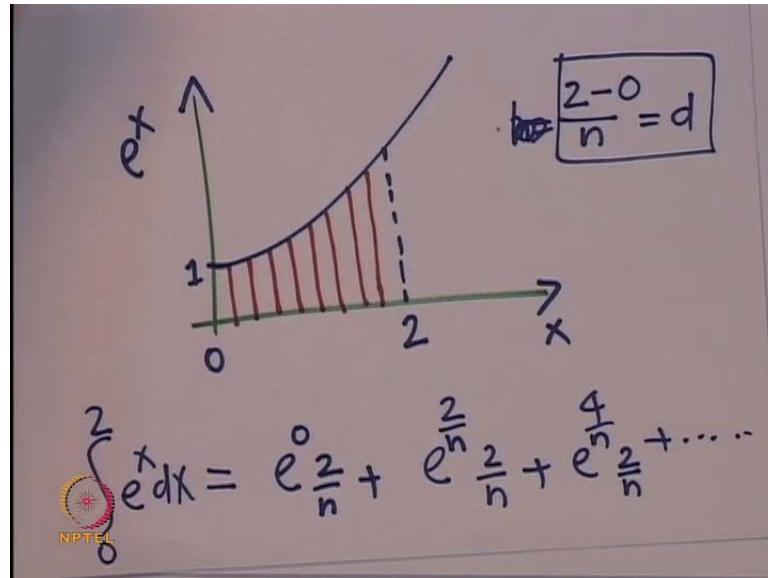 e^x
(2-0)/n = d
1
0
2
x
∫_0^2 e^x dx = e^0 2/n + e^(2/n) 2/n + e^(4/n) 2/n + .....
NPTEL